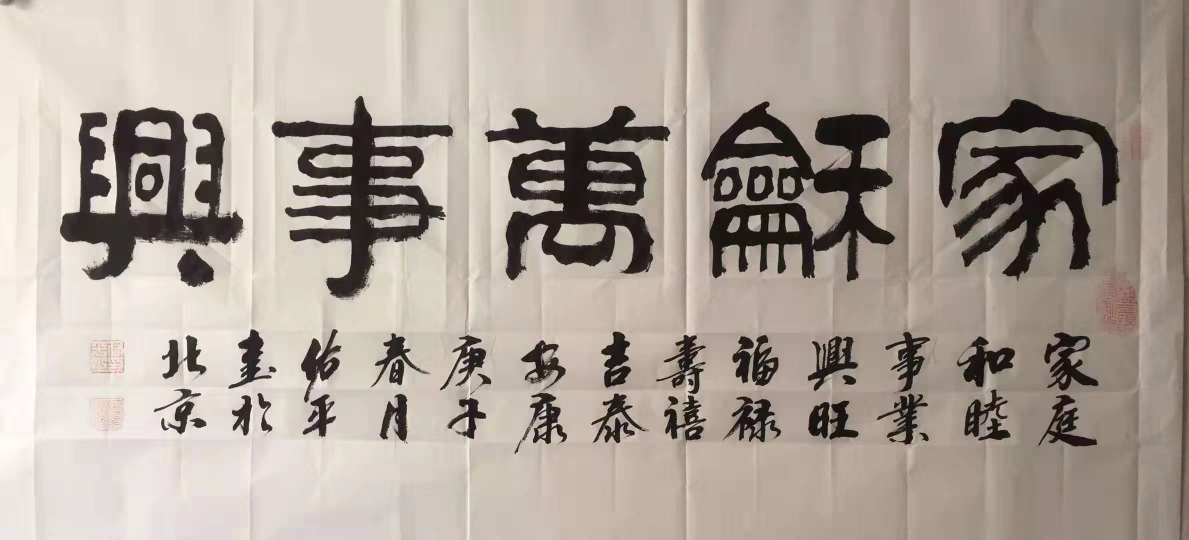 家龢萬事興
家庭
和睦
事業
興旺
福禄
壽禧
吉泰
安康
庚子
春月
佑平
書於
北京